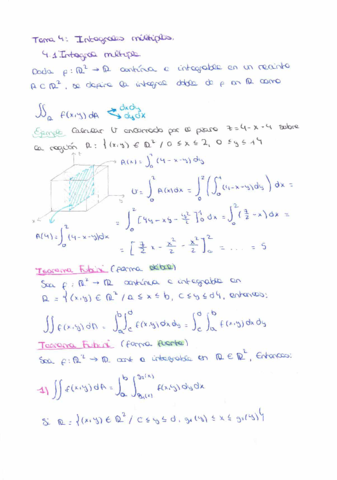 Tema 4: Integrales múltiples.
4.1 Integral múltiple
Dada f: ℝ² → ℝ continua e integrable en un recinto
A ⊂ ℝ², se define la integral doble de f en ℝ como
∬_a f(x,y) dA dxdy
dydx
Ejemplo. Calcular V encerrado por el plano z = 4-x-y sobre
la región R: {(x,y) ∈ ℝ² / 0 ≤ x ≤ 2, 0 ≤ y ≤ 1}
A(x) = ∫ (4-x-y) dy
V = ∫_0^2 A(x) dx = ∫_0^2 (∫_0^1 (4-x-y) dy) dx =
= ∫_0^2 [4y - xy - y²/2]_0^1 dx = ∫_0^2 (7/2 - x) dx =
= [7/2 x - x²/2]_0^2 = ... = 5
Teorema Fubini (forma débil)
Sea f: ℝ² → ℝ continua e integrable en
R = {(x,y) ∈ ℝ² / a ≤ x ≤ b, c ≤ y ≤ d}, entonces:
∬ f(x,y) dA = ∫_a^b ∫_c^d f(x,y) dxdy = ∫_c^d ∫_a^b f(x,y) dxdy
Teorema Fubini (forma fuerte)
Sea f: ℝ² → ℝ cont e integrable en R ∈ ℝ², Entonces:
-1) ∬ f(x,y) dA = ∫_a^b ∫_{g1(x)}^{g2(x)} f(x,y) dydx
Si R = {(x,y) ∈ ℝ² / c ≤ y ≤ d, g1(y) ≤ x ≤ g2(y)}